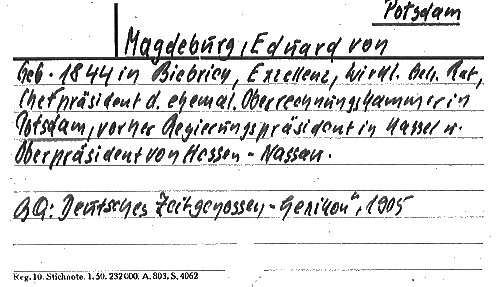 Potsdam
Magdeburg, Eduard von
Geb. 1844 in Biebrich, Exzellenz, Wirkl. Geh. Rat,
Chefpräsident d. ehemal. Oberrechnungskammer in
Potsdam, vorher Regierungspräsident in Kassel u.
Oberpräsident von Hessen-Nassau.
BQ: Deutsches Zeitgenossen-Lexikon", 1905
Reg. 10. Stichnote. 1. 50. 232000. A. 803. S. 4062